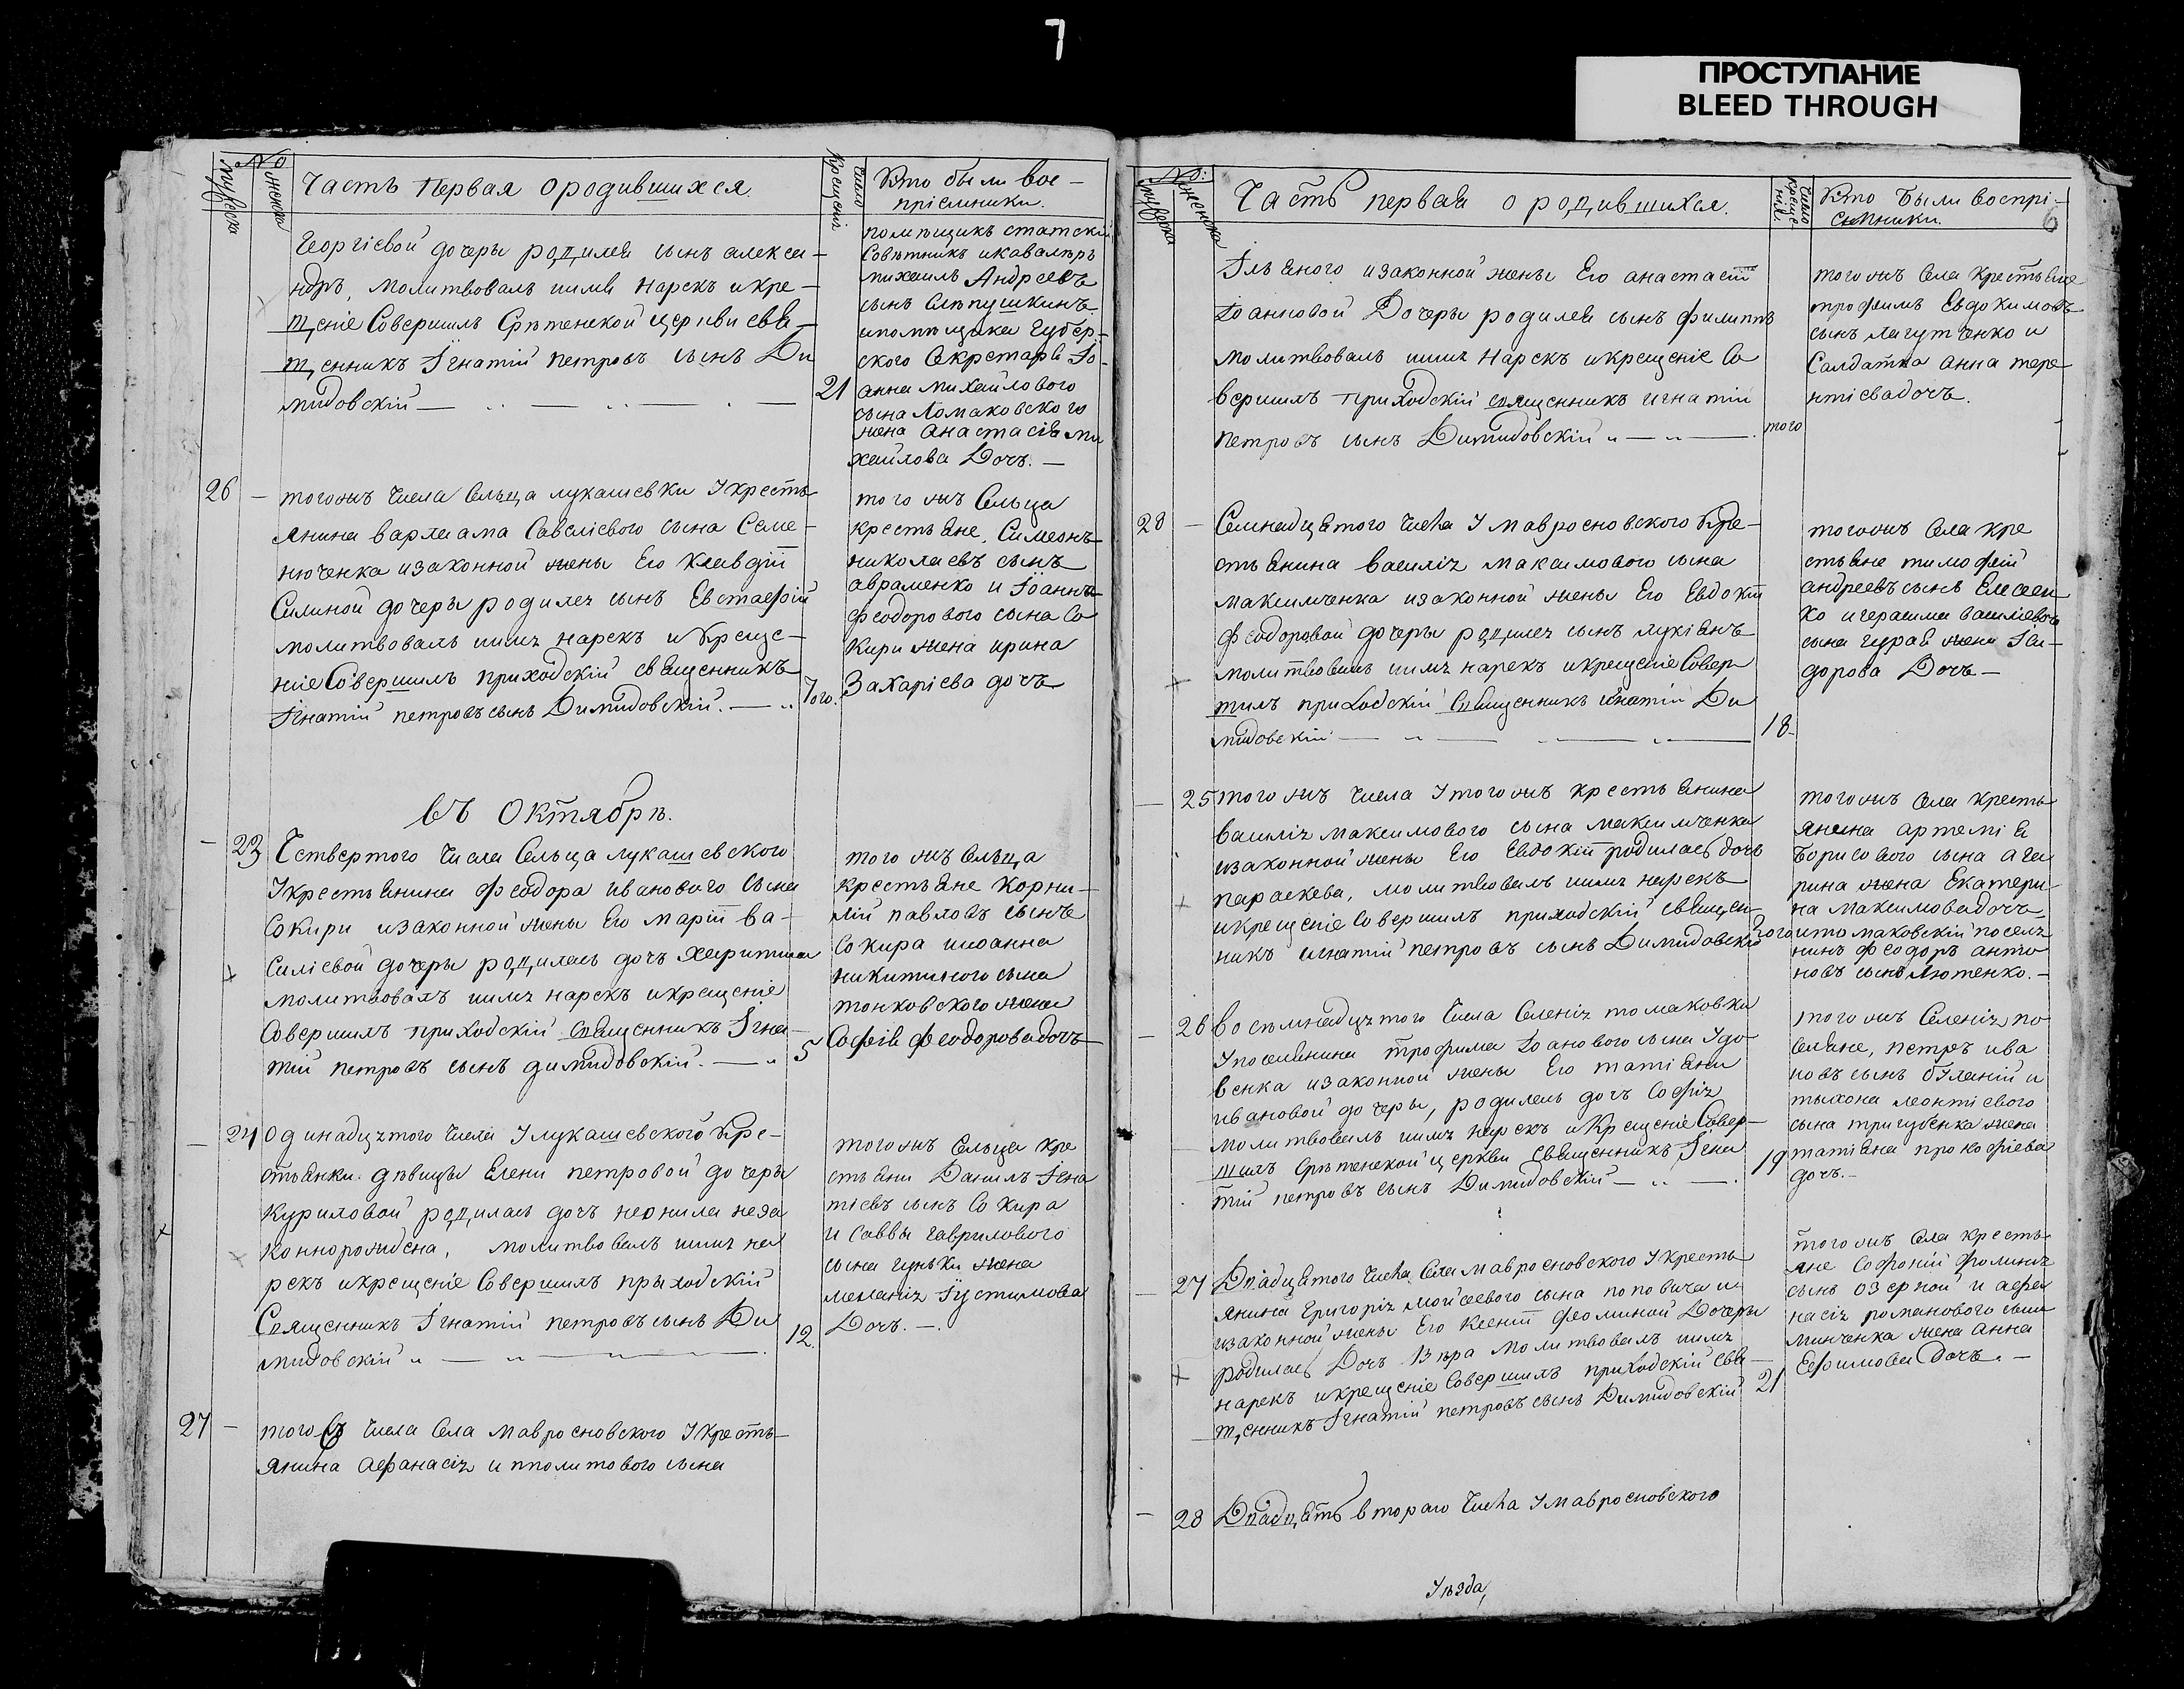 7
ПРОСТУПАНИЕ
BLEED THROUGH
No
мужеска
женска
Часть Первая о родившихся
число
крещенія
Кто были вос-
пріемники.
Георгіевой дочеры родился сынъ алекса-
ндръ, молитвовалъ имя нарекъ и кре-
щеніе Совершилъ Срѣтенской церкви свя-
щенникъ Ігнатій петровъ сынъ Ди
мидовскій
21
помѣщикъ статскій
Совѣтникъ и кавалѣръ
михаилъ Андреевъ
сынъ
и помѣщика Губер-
ского Секретаря Іо-
анна михайлового
сына Ломаковского
жена Анастасія ми
хайлова Дочъ. —
26 —
тогожъ числа Сельца лукашевки У кресть
янина варлаама Савеліевого сына Семе-
нюченка и законной жены Его Клавдіи
Силиной дочеры родился сынъ Евстафій
молитвовалъ имя нарекъ и Креще-
ніе Совершилъ приходскій священникъ
Ігнатій петровъ сынъ Димидовскій. —
Того.
того жъ Сельца
крестьяне, Симеонъ
николаевъ сынъ
авраменко и Іоанна
феодорового сына Со
Кири жена ирина
Захаріева дочъ
въ Октябрѣ.
— 23
Четвертого числа Сельца лукашевского
У крестьянина Феодора иванового сына
Сокири и законной жены Его маріи ва-
силіевой дочеры родилась дочъ харитина
молитвовалъ имя нарекъ и крещеніе
Совершилъ приходскій Священникъ Ігна-
тій петровъ сынъ димидовскій. —
5
того жъ Сельца
крестьяне Корни-
лій павловъ сынъ
Сокира и иоанна
никитиного сына
тонковского жена
Софія феодорова дочъ
— 24
Одинадцятого числа У лукашевского Кре-
стьянки дѣвицы Елены петровой дочеры
Куриловой родилась дочъ неонила неза
коннорождена, молитвовалъ имя на
рекъ и крещеніе Совершилъ приходскій
Священникъ Ігнатій петровъ сынъ Ди
мидовскій
12.
тогожъ Сельца кре
стьяни Данилъ Ігна
тіевъ сынъ Сокира
и Саввы гаврилового
сына гуньки жена
меланія Іустимова
Дочъ. —
27 —
того числа Села мавросновского У кресть
янина Афанасія ипполитового сына
No:
мужеска
женска
Часть первая о родившихся.
Число
креще
нія.
Кто Были воспрі-
емники.
6
Ілѣного и законной жены Его анастасіи
Іоанновой Дочеры родился сынъ филиппъ
молитвовалъ имя нарекъ и крещеніе Со
вершилъ приходскій священникъ игнатій
петровъ сынъ Димидовскій
того
тогожъ Села крестьяне
трофимъ Евдокимовъ
сынъ лагутченко и
Салдатка анна тере
нтіева дочъ.
28 —
Семнадцятого числа У мавросновского Кре-
стьянина василія максимового сына
максимченка и законной жены Его Евдокіи
феодоровой дочеры родился сынъ лукіянъ
молитвовалъ имя нарекъ и крещеніе Совер
шилъ приходскій Священникъ игнатій Ди
мидовскій
18.
тогожъ Села кре
стьяне тимофей
андреевъ сынъ Елесеен
ко и герасима василіевого
сына гурая жена Іси-
дорова Дочъ —
— 25
того жъ числа У того жъ крестьянина
василія максимового сына максимченка
и законной жены Его Евдокіи родилась дочъ
параскева, молитвовалъ имя нарекъ
и крещеніе Совершилъ приходскій священ
никъ игнатій петровъ сынъ Димидовскій
того
тогожъ Села кресть
янина артемія
Борисового сына
жена Екатери
на максимова дочъ
и томаковскій поселя
нинъ феодоръ анто
новъ сынъ Лютенко. —
— 26
восѣмнадцятого числа Селенія томаковки
У поселянина трофима Іоанового сына Удо
венка и законной жены Его татіяни
ивановой дочеры, родилась дочъ Софія
молитвовалъ имя нарекъ и Крещеніе Совер-
шилъ Срѣтенской церкви священникъ Ігна
тій петровъ сынъ Димидовскій —
19
того жъ Селенія по
селяне, петръ ива
новъ сынъ и
тихона леонтіевого
сына тригубенка жена
татіяна прокофіева
дочъ. —
— 27
Двадцятого числа Села мавросновского У кресть
янина Григорія мойсеевого сына поповича и
и законной жены Его Ксеніи фоминой Дочеры
родилась Дочъ Вѣра молитвовалъ имя
нарекъ и крещеніе Совершилъ приходскій свя-
щенникъ Ігнатій петровъ сынъ Димидовскій
21
тогожъ Села кресть
яне Софроній фоминъ
сынъ озерной и афа
насія романового сына
минченка жена Анна
Ефимова Дочъ. —
— 28
Двадцять втораго числа У мавросновского
Уѣзда,